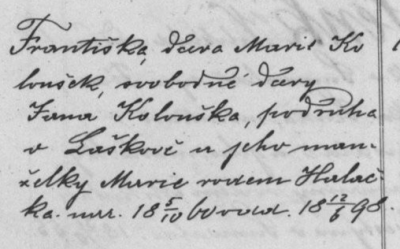 Františka, dcera Marie Ko
loušek, svobodné dcery
Jana Kolouška, podruha
v Laškově a jeho man-
želky Marie rodem Halač-
ka. nar. 18 5/10 60 rodd. 18 12/6 98.